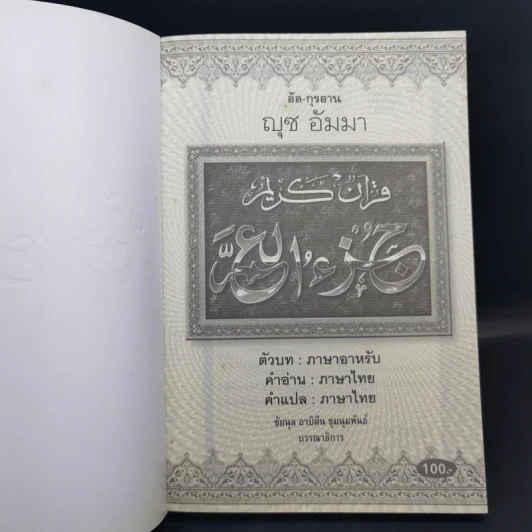 อัล-กุรอาน
ญุซ อัมมา
قرآن كريم
جزء العم
ตัวบท : ภาษาอาหรับ
คำอ่าน : ภาษาไทย
คำแปล : ภาษาไทย
ชัยนุล อาบิดีน ชุมนุมพันธ์
บรรณาธิการ
100.-